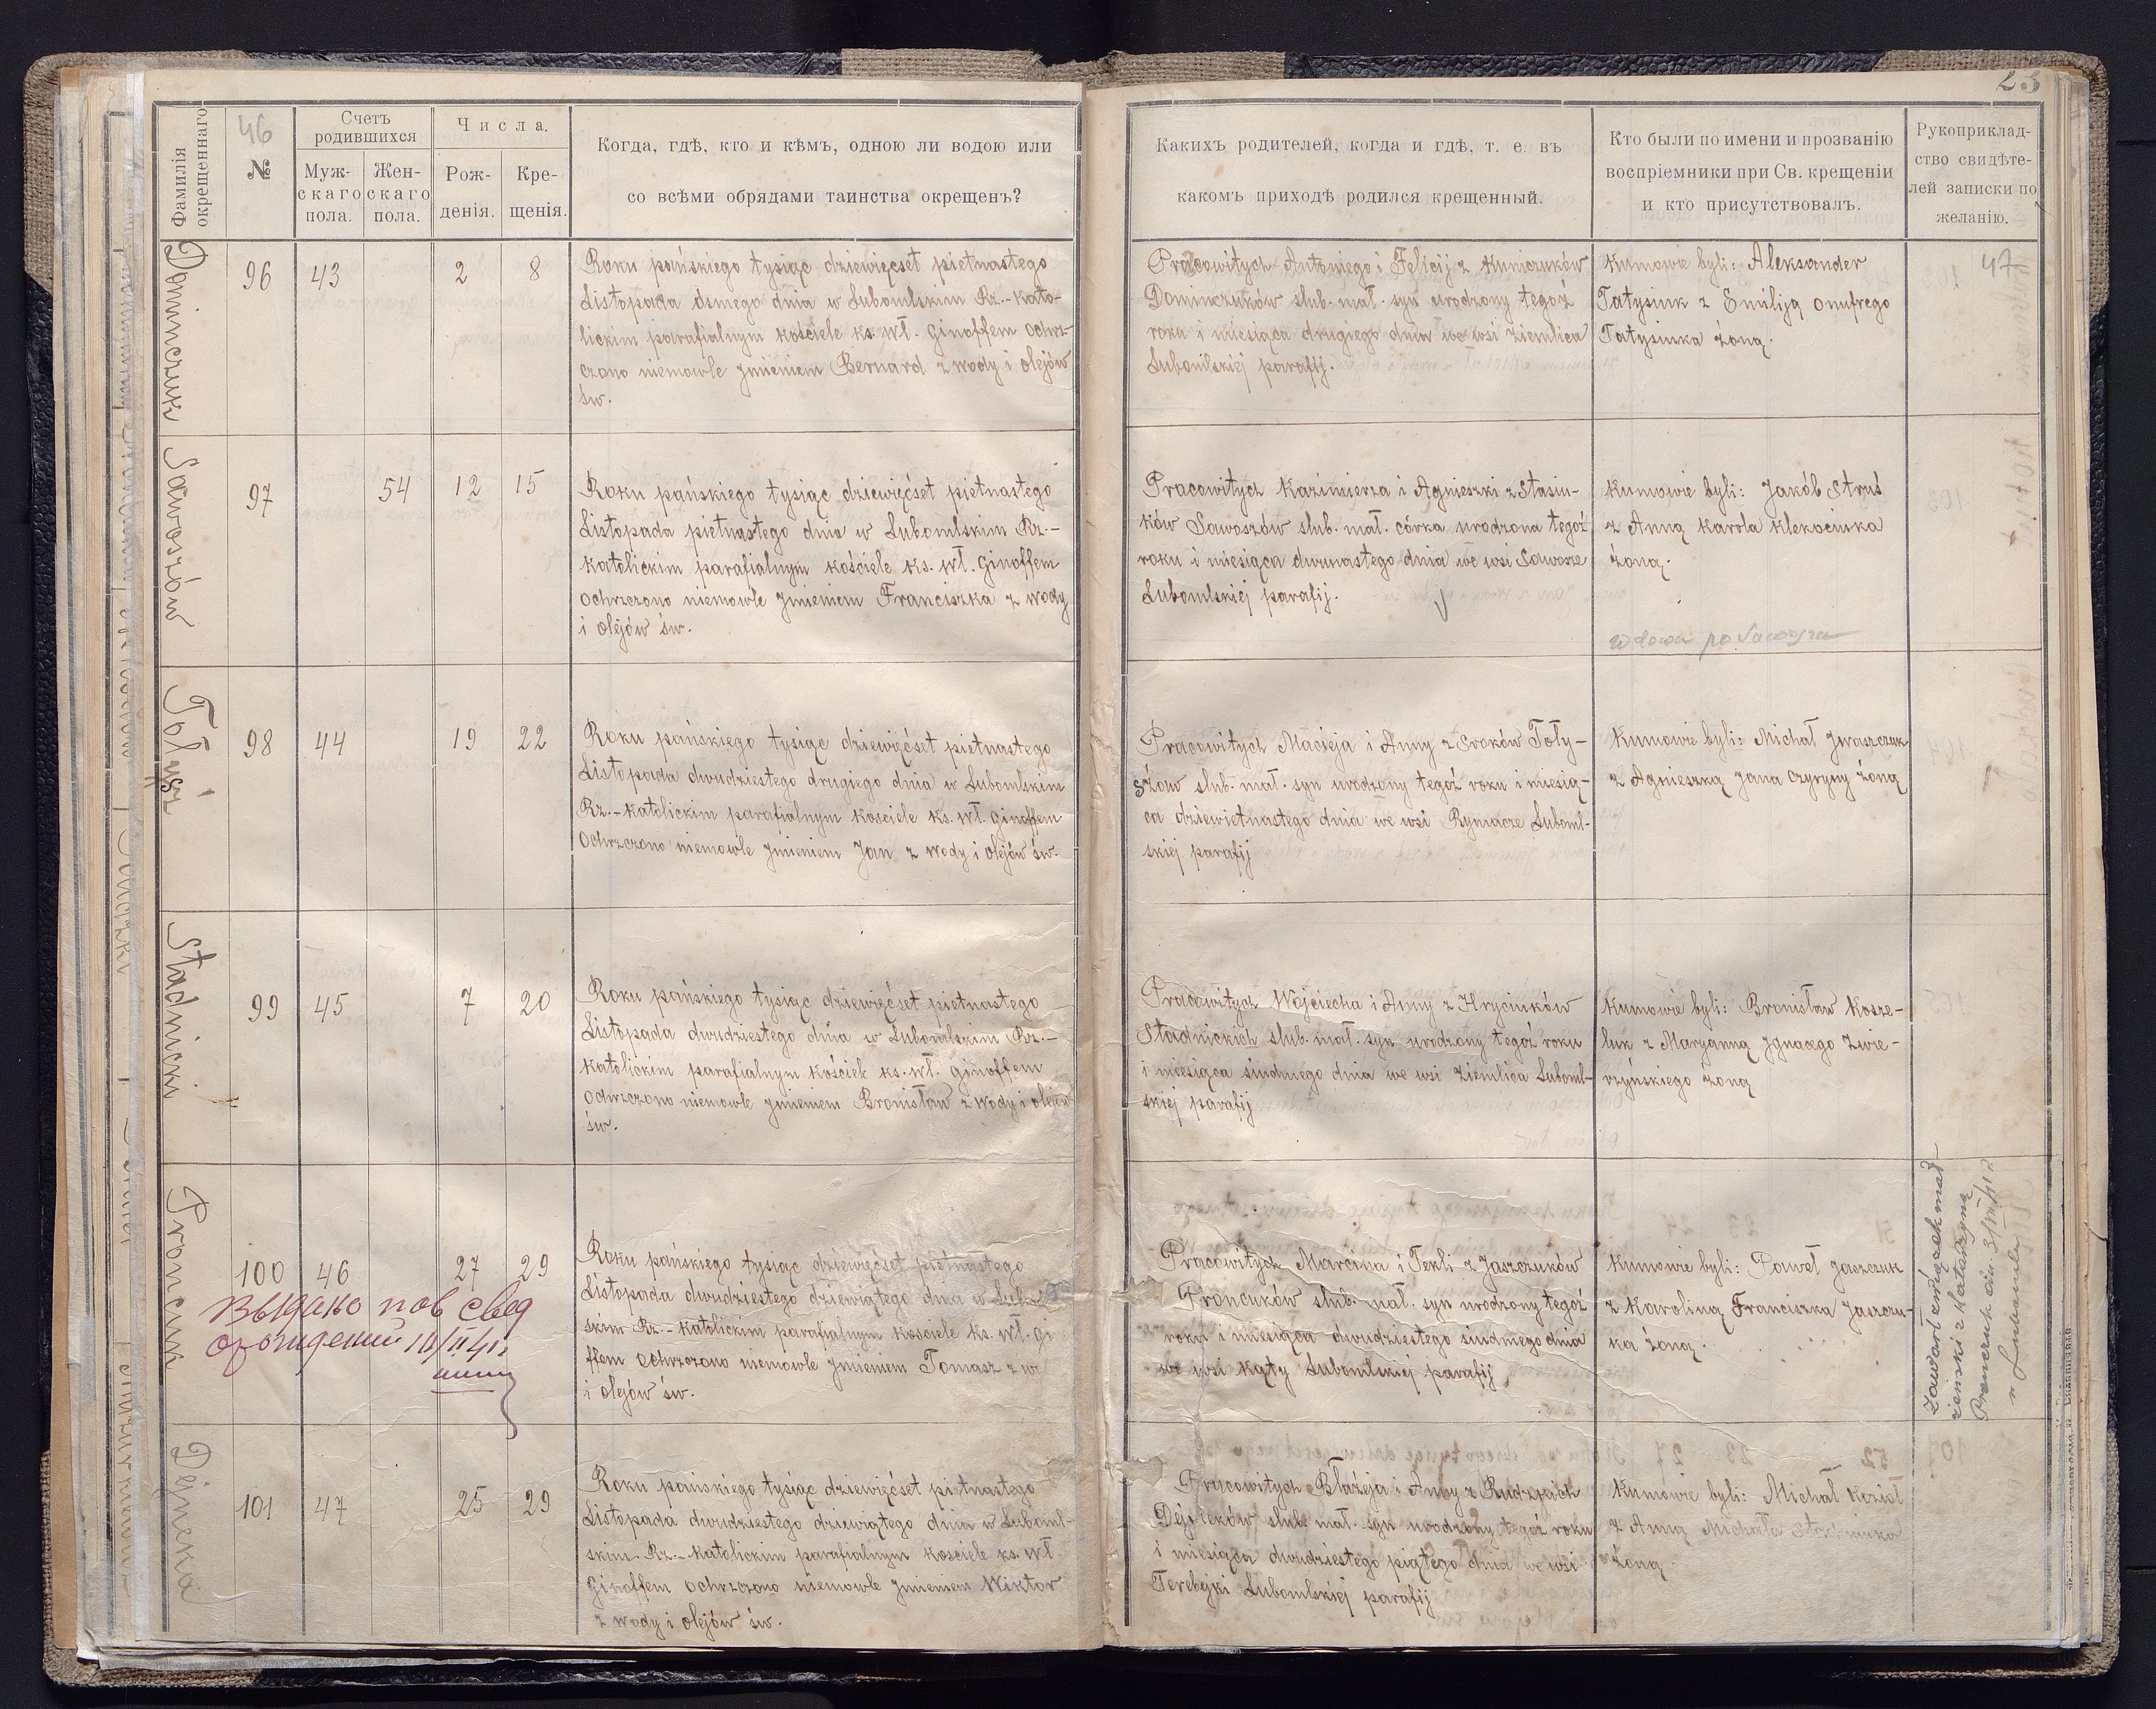 23
46
Фамилія окрещеннаго
№
Счетъ родившихся
Муж-скаго пола.
Жен-скаго пола.
Числа.
Рож-денія.
Кре-щенія.
Когда, гдѣ, кто и кѣмъ, одною ли водою или
со всѣми обрядами таинства окрещенъ?
Какихъ родителей, когда и гдѣ, т. е. въ
какомъ приходѣ родился крещенный.
Кто были по имени и прозванію
воспріемники при Св. крещеніи
и кто присутствовалъ.
Рукоприклад-
ство свидѣте-
лей записки по
желанію.
Dominczuk
96 43 2 8
Roku pańskiego tysiąc dziewięćset piętnastego
Listopada ósmego dnia w Lubomlskim Rz.-kato-
lickim parafialnym kościele ks. Wł. Ginoffem ochrz-
czono niemowle jmieniem Bernard z wody i olejów
św.
Pracowitych Antoniego i Felicij z Kuniczuków
Dominczuków ślub. mał. syn urodzony tegoż
roku i miesiąca drugiego dnia we wsi Ziemlica
Lubomlskiej parafij.
Kumowie byli: Aleksander
Tatysiuk z Emiliją Onufrego
Tatysiuka żoną.
47
Sawoszów
97 54 12 15
Roku pańskiego tysiąc dziewięćset piętnastego
Listopada piętnastego dnia w Lubomlskim Rz.-
katolickim parafialnym kościele ks. Wł. Ginoffem
ochrzczono niemowle jmieniem Franciszka z wody
i olejów św.
Pracowitych Kazimierza i Agnieszki z Stasiu-
ków Sawoszów ślub. mał. córka urodzona tegoż
roku i miesiąca dwunastego dnia we wsi Sawosze
Lubomlskiej parafij.
Kumowie byli: Jakób Struś
z Anną Karola Klekociuka
żoną.
wdowa po Sawosza
Tołysz
98 44 19 22
Roku pańskiego tysiąc dziewięćset piętnastego
Listopada dwudziestego drugiego dnia w Lubomlskim
Rz.-katolickim parafialnym kościele ks. Wł. Ginoffem
ochrzczono niemowle jmieniem Jan z wody i olejów św.
Pracowitych Macieja i Anny z Sroków Toły-
szów ślub. mał. syn urodzony tegoż roku i miesią-
ca dziewiętnastego dnia we wsi Rymacze Luboml-
skiej parafij
Kumowie byli: Michał Jwaszczuk
z Agnieszką Jana Czyryny żoną
Stadnicki
99 45 7 20
Roku pańskiego tysiąc dziewięćset piętnastego
Listopada dwudziestego dnia w Lubomlskim Rz.-
katolickim parafialnym kościele ks. Wł. Ginoffem
ochrzczono niemowle jmieniem Bronisław z wody i olejów
św.
Pracowitych Wojciecha i Anny z Hryciuków
Stadnickich ślub. mał. syn urodzony tegoż roku
i miesiąca siódmego dnia we wsi Ziemlica Luboml-
skiej parafij
Kumowie byli: Bronisław Kosze-
luk z Maryanną Jgnacego Zwie-
rzyńskiego żoną
Pronciuk
100 46 27 29
Выдано пов свед
о рождении 10/II 41 г
Roku pańskiego tysiąc dziewięćset piętnastego
Listopada dwudziestego dziewiątego dnia w Luboml
skim Rz.-katolickim parafialnym kościele ks. Wł. Gi
ffem ochrzczono niemowle jmieniem Tomasz z w
i olejów św.
Pracowitych Marcina i Tekli z Jaszczuków
Pronciuków ślub. mał. syn urodzony tegoż
roku i miesiąca dwudziestego siódmego dnia
we wsi Kąty Lubomlskiej parafij
Kumowie byli: Paweł Jaszczuk
z Karoliną Franciszka Jaszczu-
ka żoną.
Zawarł związek mał-
żeński z Katarzyną
w Lubomlu
Dejneka
101 47 25 29
Roku pańskiego tysiąc dziewięćset piętnastego
Listopada dwudziestego dziewiątego dnia w Luboml-
skim Rz.-katolickim parafialnym kościele ks. Wł.
Ginoffem ochrzczono niemowle jmieniem Wiktor
z wody i olejów św.
Pracowitych Błażeja i Anny z Rudzkich
Dejneków ślub. mał. syn urodzony tegoż roku
i miesiąca dwudziestego piątego dnia we wsi
Terebejki Lubomlskiej parafij
Kumowie byli: Michał Kozioł
z Anną Michała
żoną.